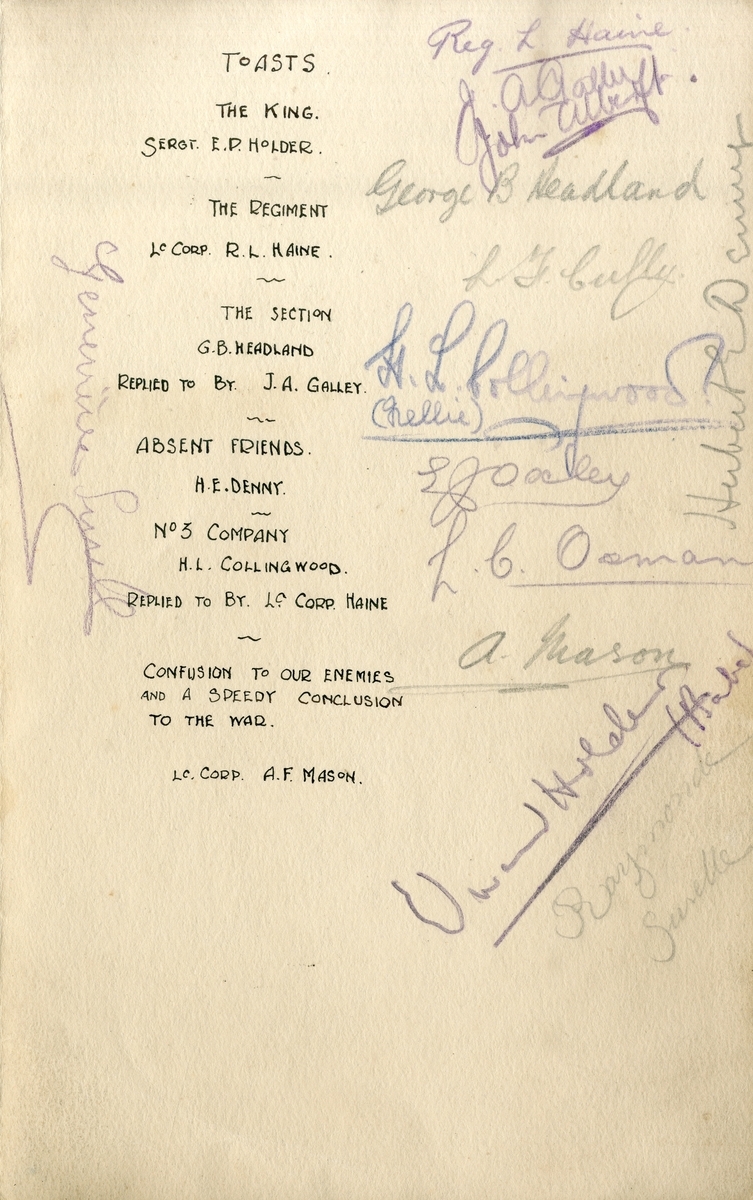 TOASTS.
THE KING.
SERGT. E.P. HOLDER.
THE REGIMENT
Lc CORP. R.L. HAINE.
THE SECTION
G.B. HEADLAND
REPLIED TO BY. J.A. GALLEY.
ABSENT FRIENDS.
H.E. DENNY.
No 3 COMPANY
H.L. COLLINGWOOD.
REPLIED TO BY. Lc CORP. HAINE
CONFUSION TO OUR ENEMIES
AND A SPEEDY CONCLUSION
TO THE WAR.
Lc. CORP. A.F. MASON.
Reg. L Haine
J. A Galley
John Albert
George B Headland
H. L. Collingwood
(Nellie)
L. C. Osman
A. Mason
Holder
Raymonde
Denny